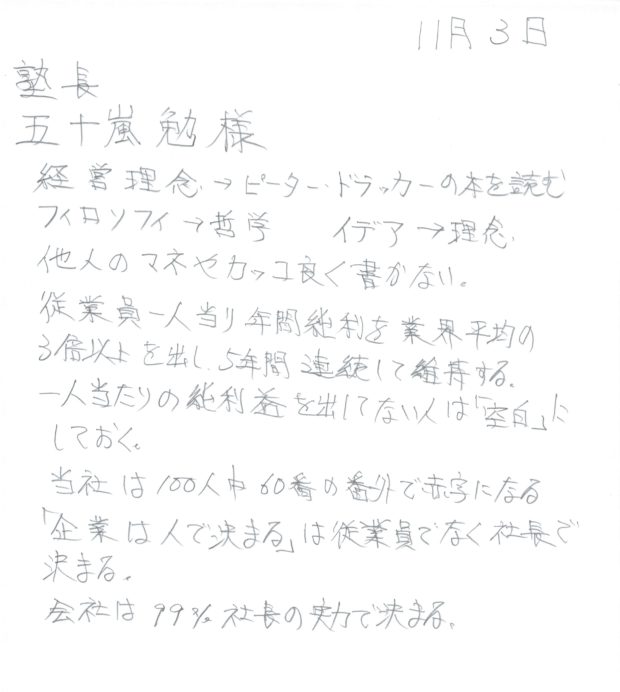 11月3日
塾長
五十嵐勉様
経営理念→ピーター・ドラッカーの本を読む
フィロソフィ→哲学 イデア→理念
他人のマネやカッコ良く書かない。
従業員一人当り年間純利を業界平均の
3倍以上を出し、5年間連続して維持する。
一人当たりの純利益を出してない人は「空白」に
しておく。
当社は100人中60番の番外で赤字になる
「企業は人で決まる」は従業員でなく社長で
決まる。
会社は99%社長の実力で決まる。